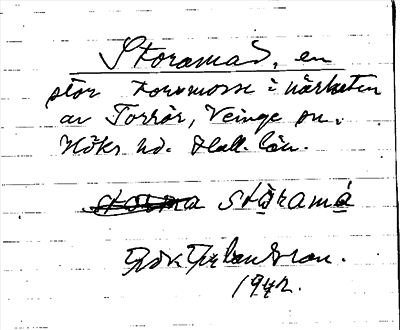 Storamad, en
stor torvmosse i närheten
av Torrör, Veinge sn.
Höks hd. Hall. län.
storma störamå
1942.